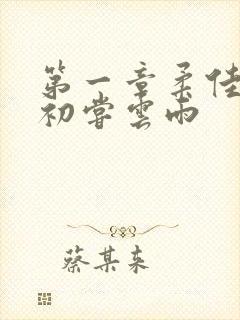 第一章柔佳
初嘗雲雨
蔡某来